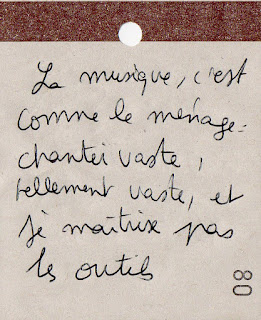 La musique, c'est
comme le ménage -
chantei vaste,
tellement vaste, et
je maîtrise pas
les outils
80